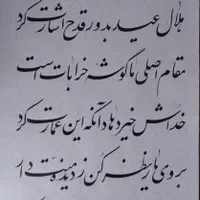 هلال عید بدور قدح اشارت کرد
مقام اصلی ما گوشه خرابات است
خداش خیر دهاد آنکه این عمارت کرد
بروی یار نظر کن ز دیده منت دار